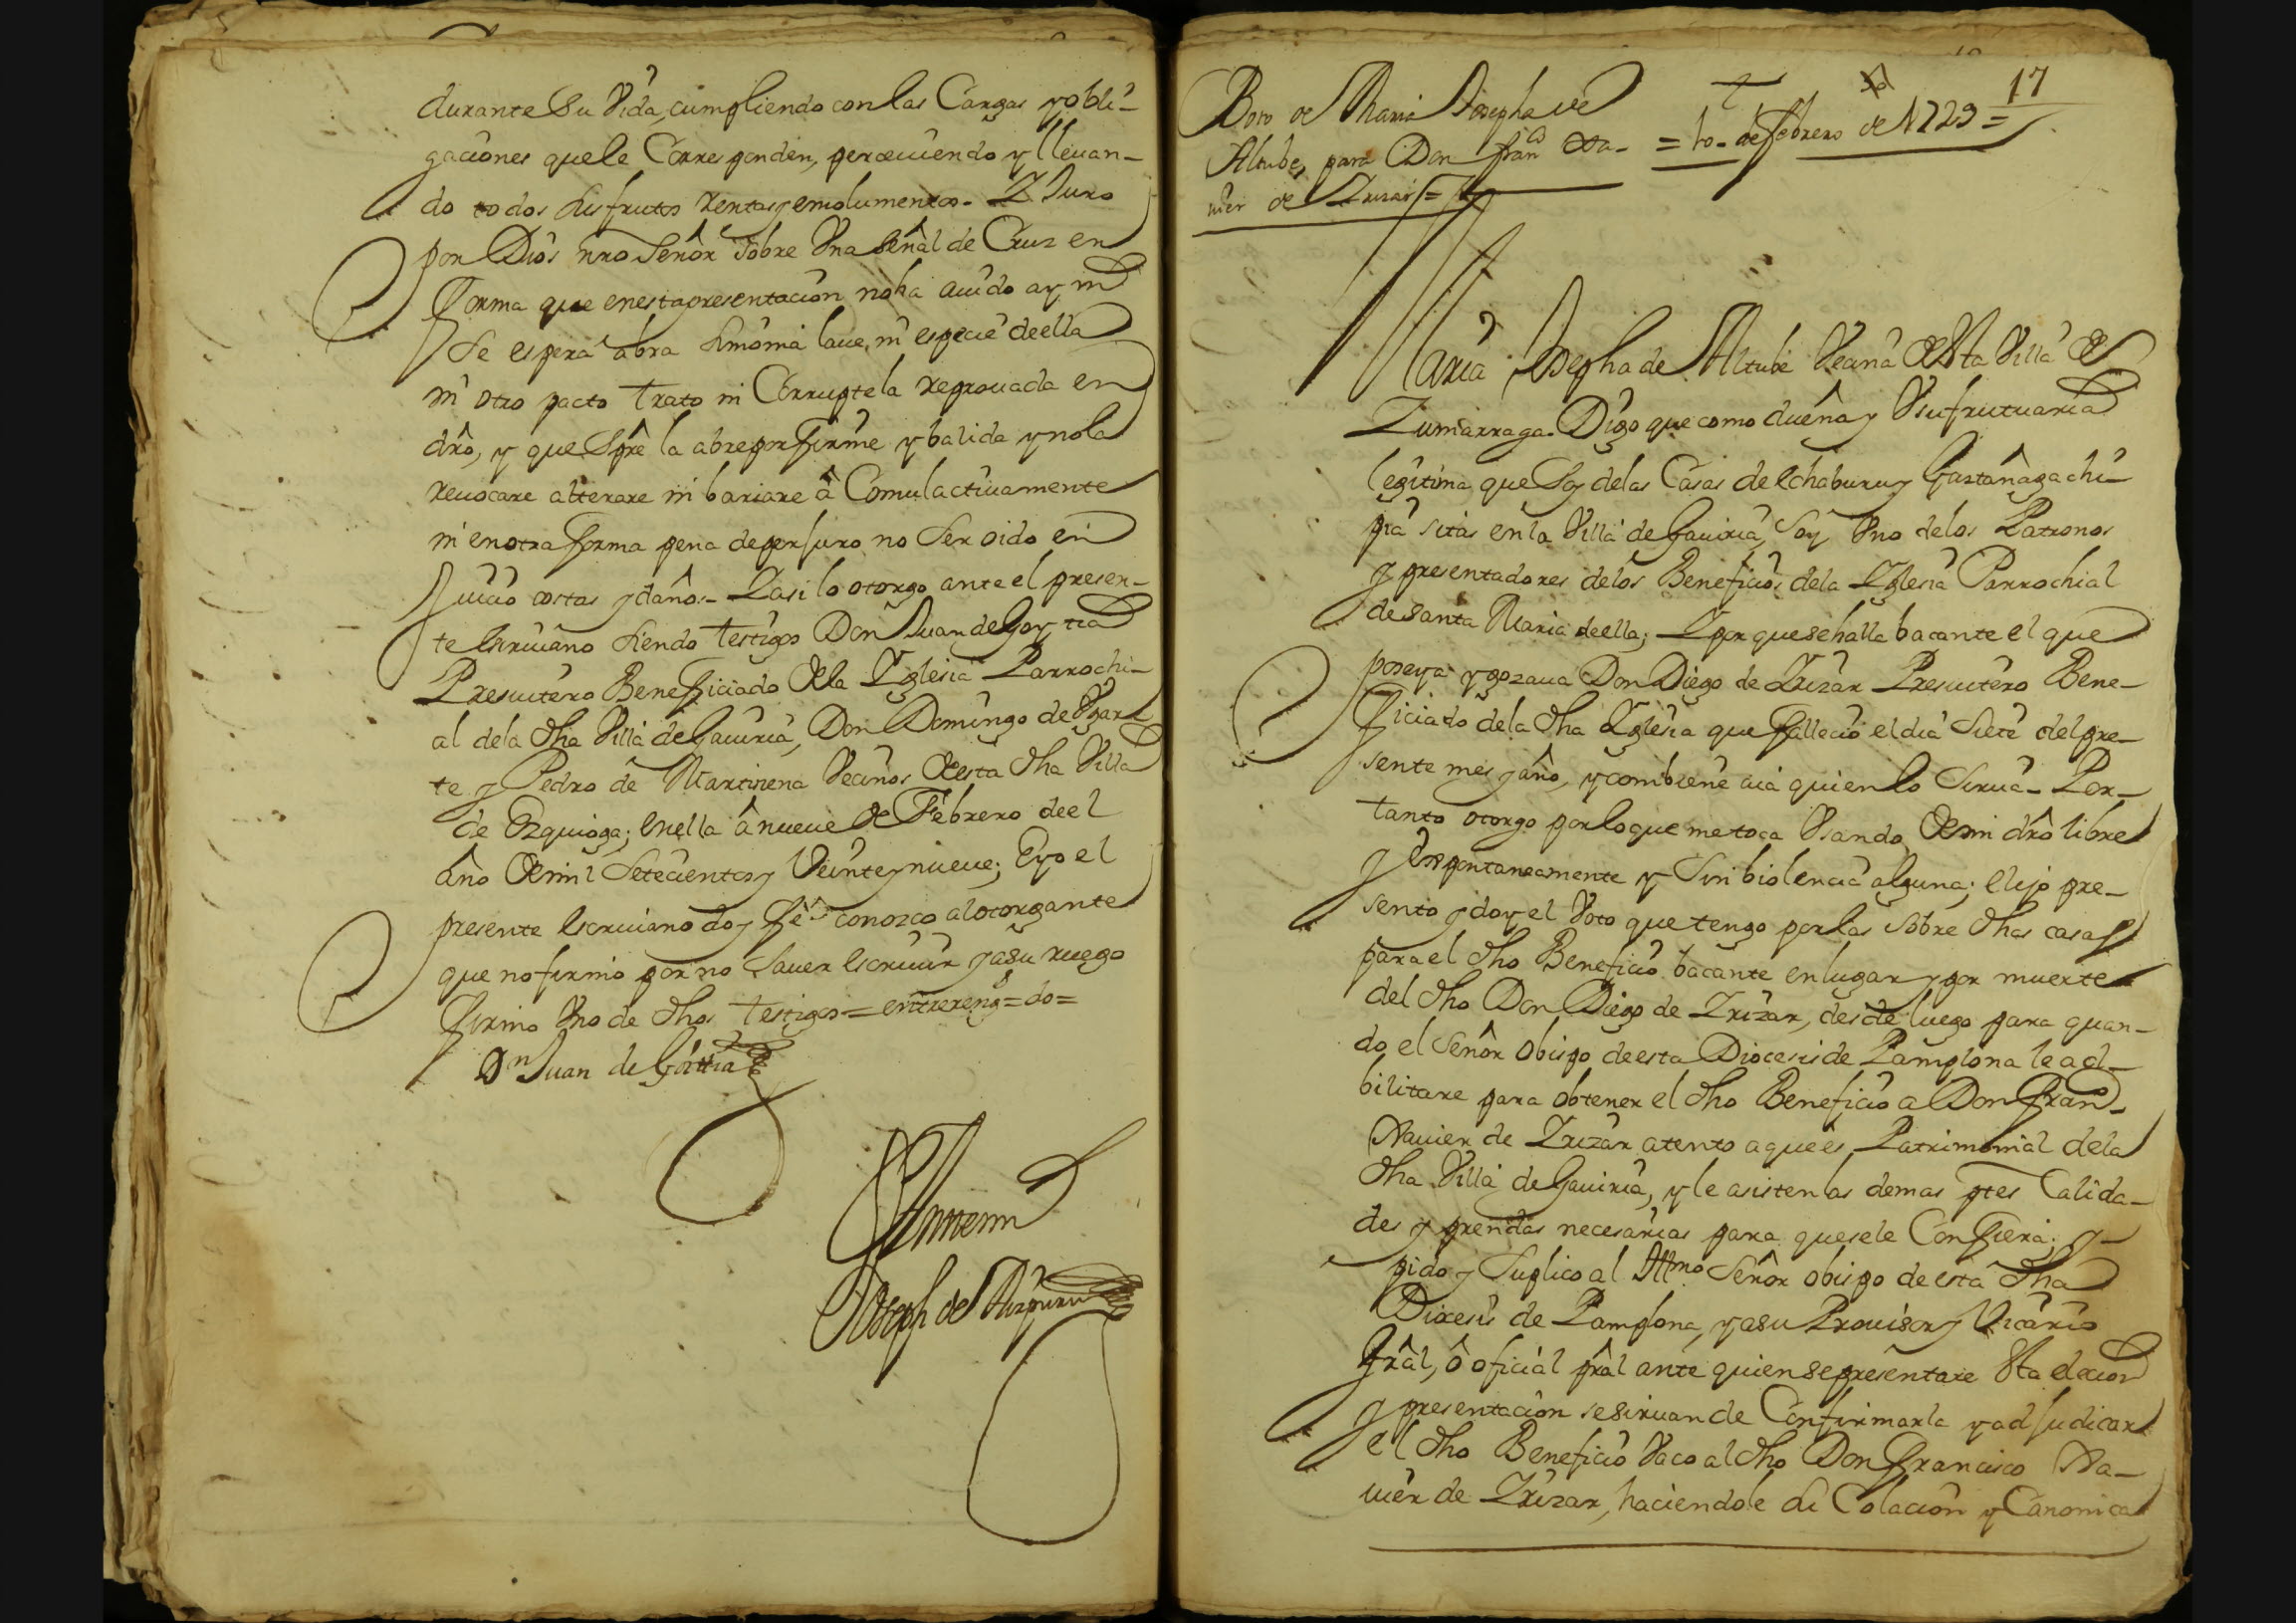 durante su Vida, cumpliendo con las Cargas y obli-
gaciones que le Corresponden, perceuiendo y lleuan-
do todos sus frutos Rentas y emolumentos. Y Juro
por Dios nro Señor sobre Vna señal de Cruz en
forma que en esta presentacion no ha auido ay ni
se espera abra simonia laue, ni especie de ella
ni otro pacto trato ni Corruptela reprouada en
dro, y que Spre la abre por firme y balida y no la
reuocare alterare ni bariare â Comulactiuamente
ni en otra forma pena de perjuro no ser oido en
Juicio costas y daños- Y asi lo otorgo ante el presen-
te Escriuano siendo testigos Don Juan de Goytia
Presuitero Beneficiado de la Yglesia Parrochi-
al de la dha Villa de Gauiria, Don Domingo de Vgar-
te y Pedro de Martirena Vecinos de esta dha Villa
de Ezquioga; en ella â nueue de Febrero de el
año de mil Setecientos y Veinte y nueue; E yo el
presente Escriuano doy feê conozco al otorgante
que no firmo por no sauer escriuir y a su ruego
firmo Vno de dhos testigos = entrereng = do =
Dn Juan de Goittia
Ante mi
Joseph de Aizpuru
17
Boto de Maria Josepha de
Altube, para Don Franco Xa- = 10 - de febrero de 1729 =
uier de Yrizar =
Maria Josepha de Altube Vecina de esta Villa de
Zumarraga. Digo que como dueña y Vsufrutuaria
legitima que soy de las Casas de Echaburu y Gastañaga chi-
pia sitas en la Villa de Gauiria, soy Vno de los Patronos
y presentadores de los Beneficios de la Yglesia Parrochial
de santa Maria de ella; Y por que se halla bacante el que
poseya y gozaua Don Diego de Yrizar Presuitero Bene-
ficiado de la dha Yglesia que fallecio el dia siete del pre-
sente mes y año, y combiene aia quien lo sirua- Por-
tanto otorgo por lo que me toca Vsando de mi dro libre
y Espontaneamente y sin biolencia alguna; elijo pre-
sento y doy el Voto que tengo por las sobre dhas casas
para el dho Beneficio bacante en lugar y por muerte
del dho Don Diego de Yrizar, desde luego para quan-
do el señor Obispo de esta Diocesis de Pamplona le ad-
bilitare para obtener el dho Beneficio a Don Franco-
Xauier de Yrizar atento a que es Patrimonial de la
dha Villa de Gauiria, y le asisten las demas ptes Calida-
des y prendas necesarias para que se le Confiera; y-
pido y suplico al Illmo Señor obispo de esta dha
Diocesis de Pamplona, y a su Prouisor y Vicario
Gral, ô oficial pral ante quien se presentare esta eleccion
y presentacion se siruan de Confirmarla y adjudicar
el dho Beneficio Vaco al dho Don Francisco Xa-
uier de Yrizar, haciendole su Colacion y Canonica